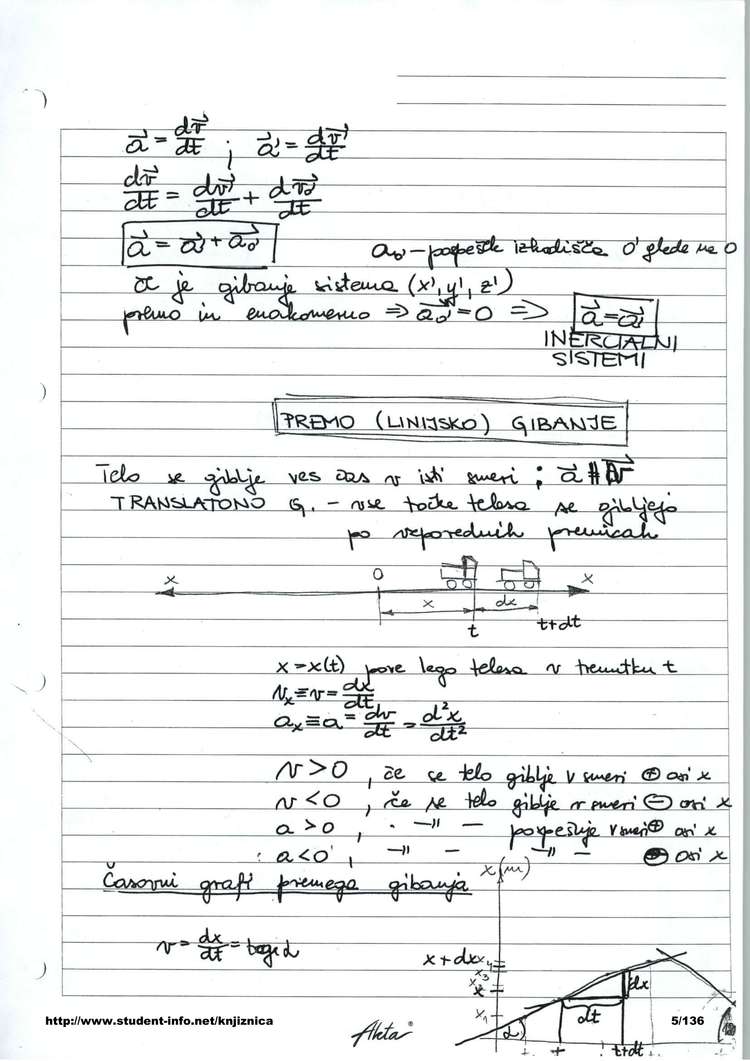 a⃗ = dv⃗/dt ; a⃗' = dv⃗'/dt
dv⃗/dt = dv⃗'/dt + dv⃗₀'/dt
a⃗ = a⃗' + a⃗₀' a₀' - pospešek izhodišča O' glede na O
če je gibanje sistema (x', y', z')
premo in enakomerno ⇒ a⃗₀' = 0 ⇒ a⃗ = a⃗'
INERCIALNI
SISTEMI
PREMO (LINIJSKO) GIBANJE
Telo se giblje ves čas v isti smeri ; a⃗ ∦ v⃗
TRANSLATORNO G. - vse točke telesa se gibljejo
po vzporednih premicah
x 0 x
x dx
t t+dt
x = x(t) pove lego telesa v trenutku t
vₓ ≡ v = dx/dt
aₓ ≡ a = dv/dt = d²x/dt²
v > 0 , če se telo giblje v smeri ⊕ osi x
v < 0 , če se telo giblje v smeri ⊖ osi x
a > 0 , - || - pospešuje v smeri ⊕ osi x
a < 0 , - || - - || - ⊖ osi x
Časovni grafi premega gibanja x (m)
v = dx/dt = tg α
x + dx x₄
x₃
x₂
x
x₁ α dt dx
t t+dt
http://www.student-info.net/knjiznica
Akta
5/136